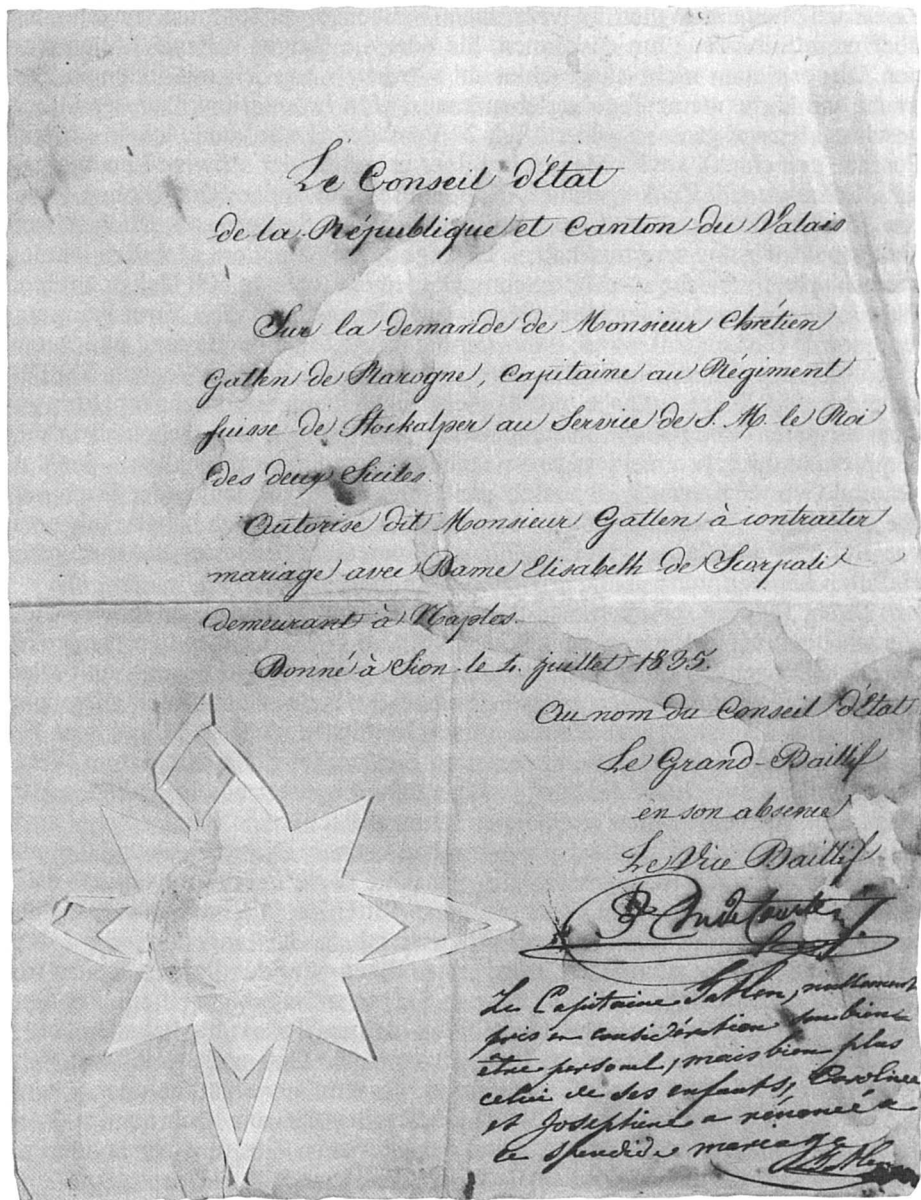 Le Conseil d'Etat
de la République et Canton du Valais
Sur la demande de Monsieur Chrétien
Gatlen de Rarogne, Capitaine au Régiment
suisse de Stockalper au Service de S. M. le Roi
des deux Siciles.
Autorise dit Monsieur Gatlen à contracter
mariage avec Dame Elisabeth de Scorpati
demeurant à Naples.
Donné à Sion le 4. juillet 1835.
Au nom du Conseil d'Etat
Le Grand-Baillif
en son absence
Le Vice Baillif
Le Capitaine Gatlen, nullement
pris en considération son bien-
être personel, mais bien plus
celui de ses enfants, Caroline
et Josephine a rénoncé à
ce splendide mariage